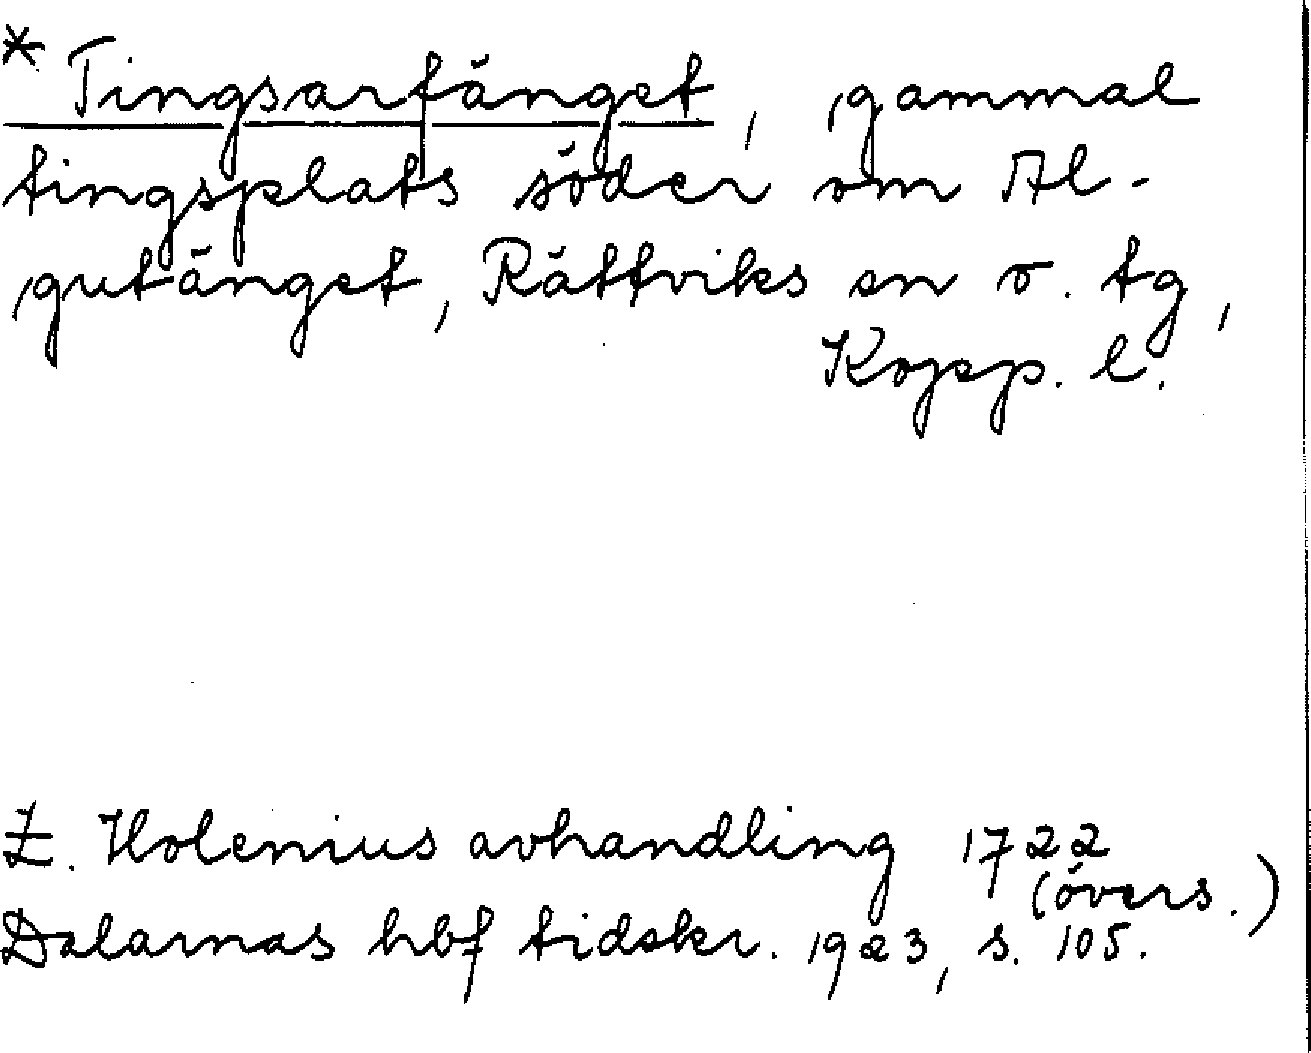 * Tingsarfänget, gammal
tingsplats söder om Al-
gutänget, Rättviks sn o. tg,
Kopp. l.
Z. Holenius avhandling 1722
(övers.)
Dalarnas hbf tidskr. 1923, s. 105.